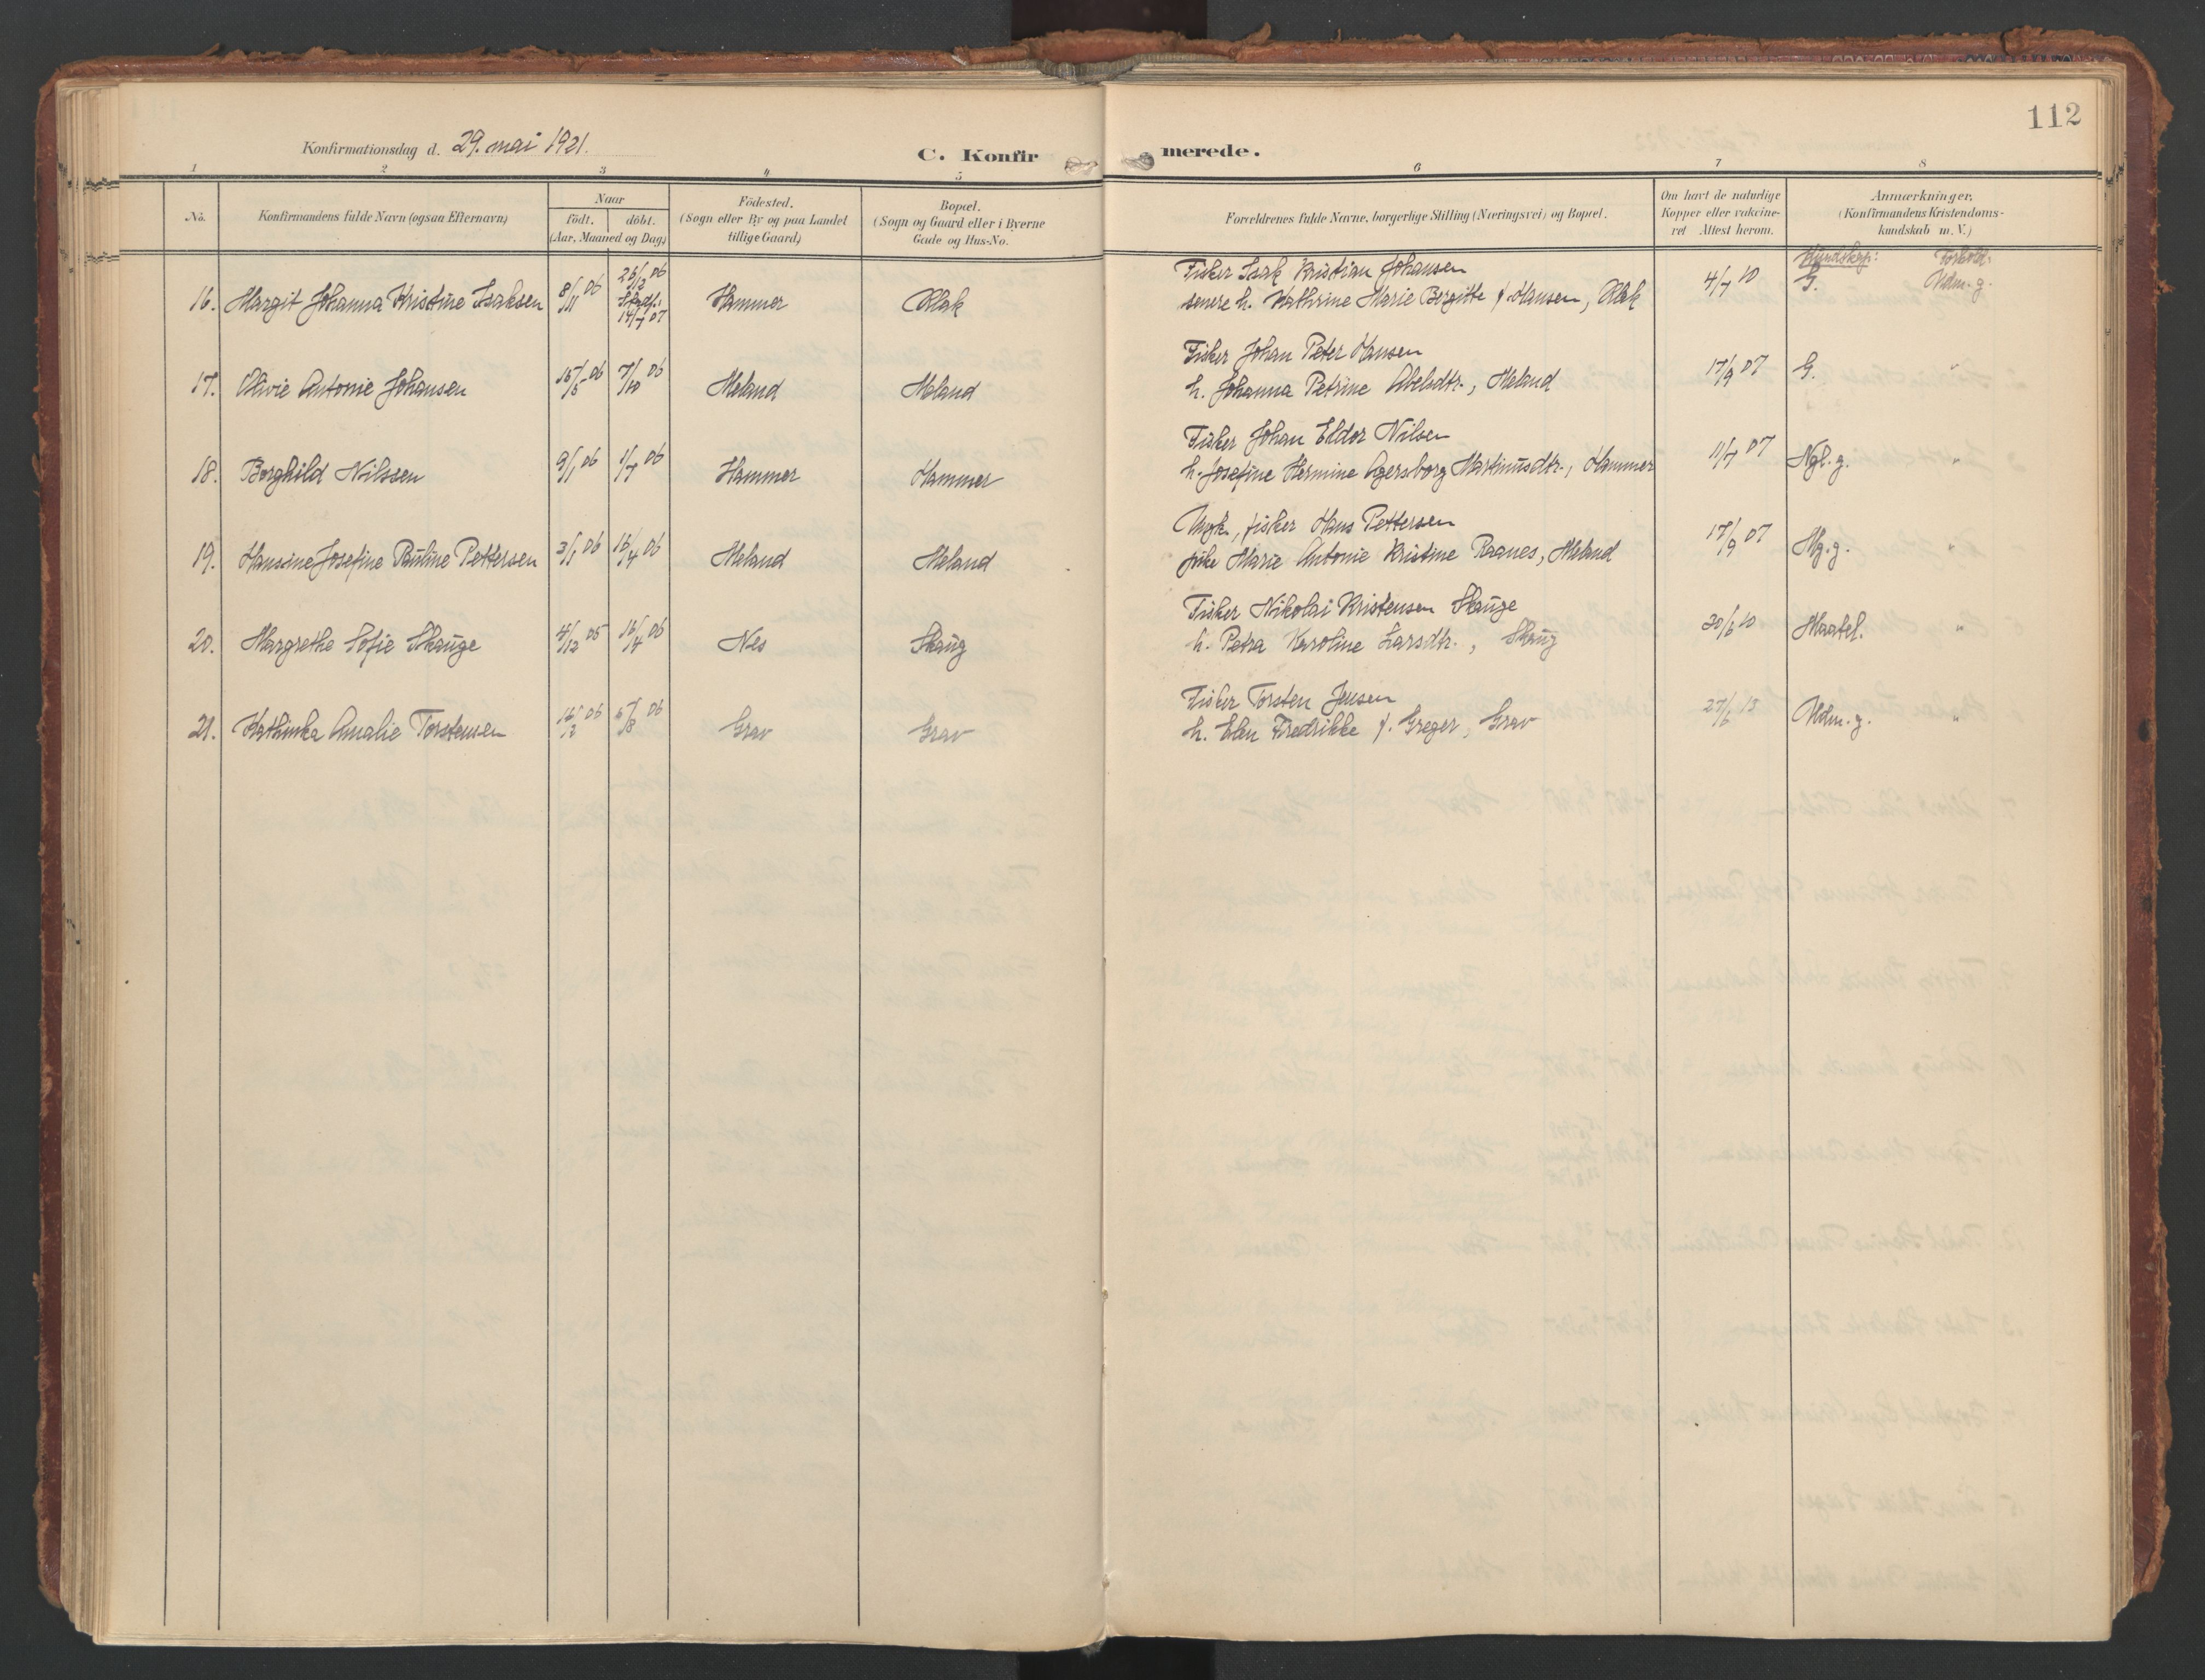 112
Konfirmationsdag d. 29. mai 1921.
C. Konfirmerede.
1 2 3 4 5 6 7 8
No.
Konfirmandens fulde Navn (ogsaa Efternavn)
Naar
födt. döbt.
(Aar, Maaned og Dag)
Födested.
(Sogn eller By og paa Landet
tillige Gaard)
Bopæl.
(Sogn og Gaard eller i Byerne
Gade og Hus-No.
Forældrenes fulde Navne, borgerlige Stilling (Næringsvei) og Bopæl.
Om havt de naturlige
Kopper eller vakcine-
ret Attest herom.
Anmærkninger,
(Konfirmandens Kristendoms-
kundskab m. V.)
Kundskap: Forhold:
16. Margit Johanna Kristine Isaksen 8/11 06 26/12 06 Stadf. 14/7 07 Hammer
Fisker Isak Kristian Johansen
senere h. Kathrine Marie Bergitte f. Hansen,
4/7 10 G. Udm. g.
17. Olivie Antonie Johansen 15/5 06 7/10 06 Meland Meland
Fisker Johan Peter Hansen
h. Johanna Petrine Abelsdtr., Meland
17/9 07 G. "
18. Borghild Nilssen 9/1 06 1/7 06 Hammer Hammer
Fisker Johan Eldor Nilsen
h. Josefine Hermine Agersborg Martinusdtr., Hammer
11/7 07 Ngl. g. "
19. Hansine Josefine Pauline Pettersen 3/1 06 16/4 06 Meland Meland
Ungk., fisker Hans Pettersen
pike Marie Antonie Kristine Raanes, Meland
17/9 07 Mg. g. "
20. Margrethe Sofie Skauge 4/12 05 16/4 06 Nes Skaug
Fisker Nikolai Kristensen Skauge
h. Petra Karoline Larsdtr., Skaug
30/6 10 Maatel. "
21. Kathinka Amalie Torstensen 06 5/8 06 Grav Grav
Fisker Torsten Jensen
h. Elen Fredrikke f. Greger, Grav
27/6 13 Udm. g. "